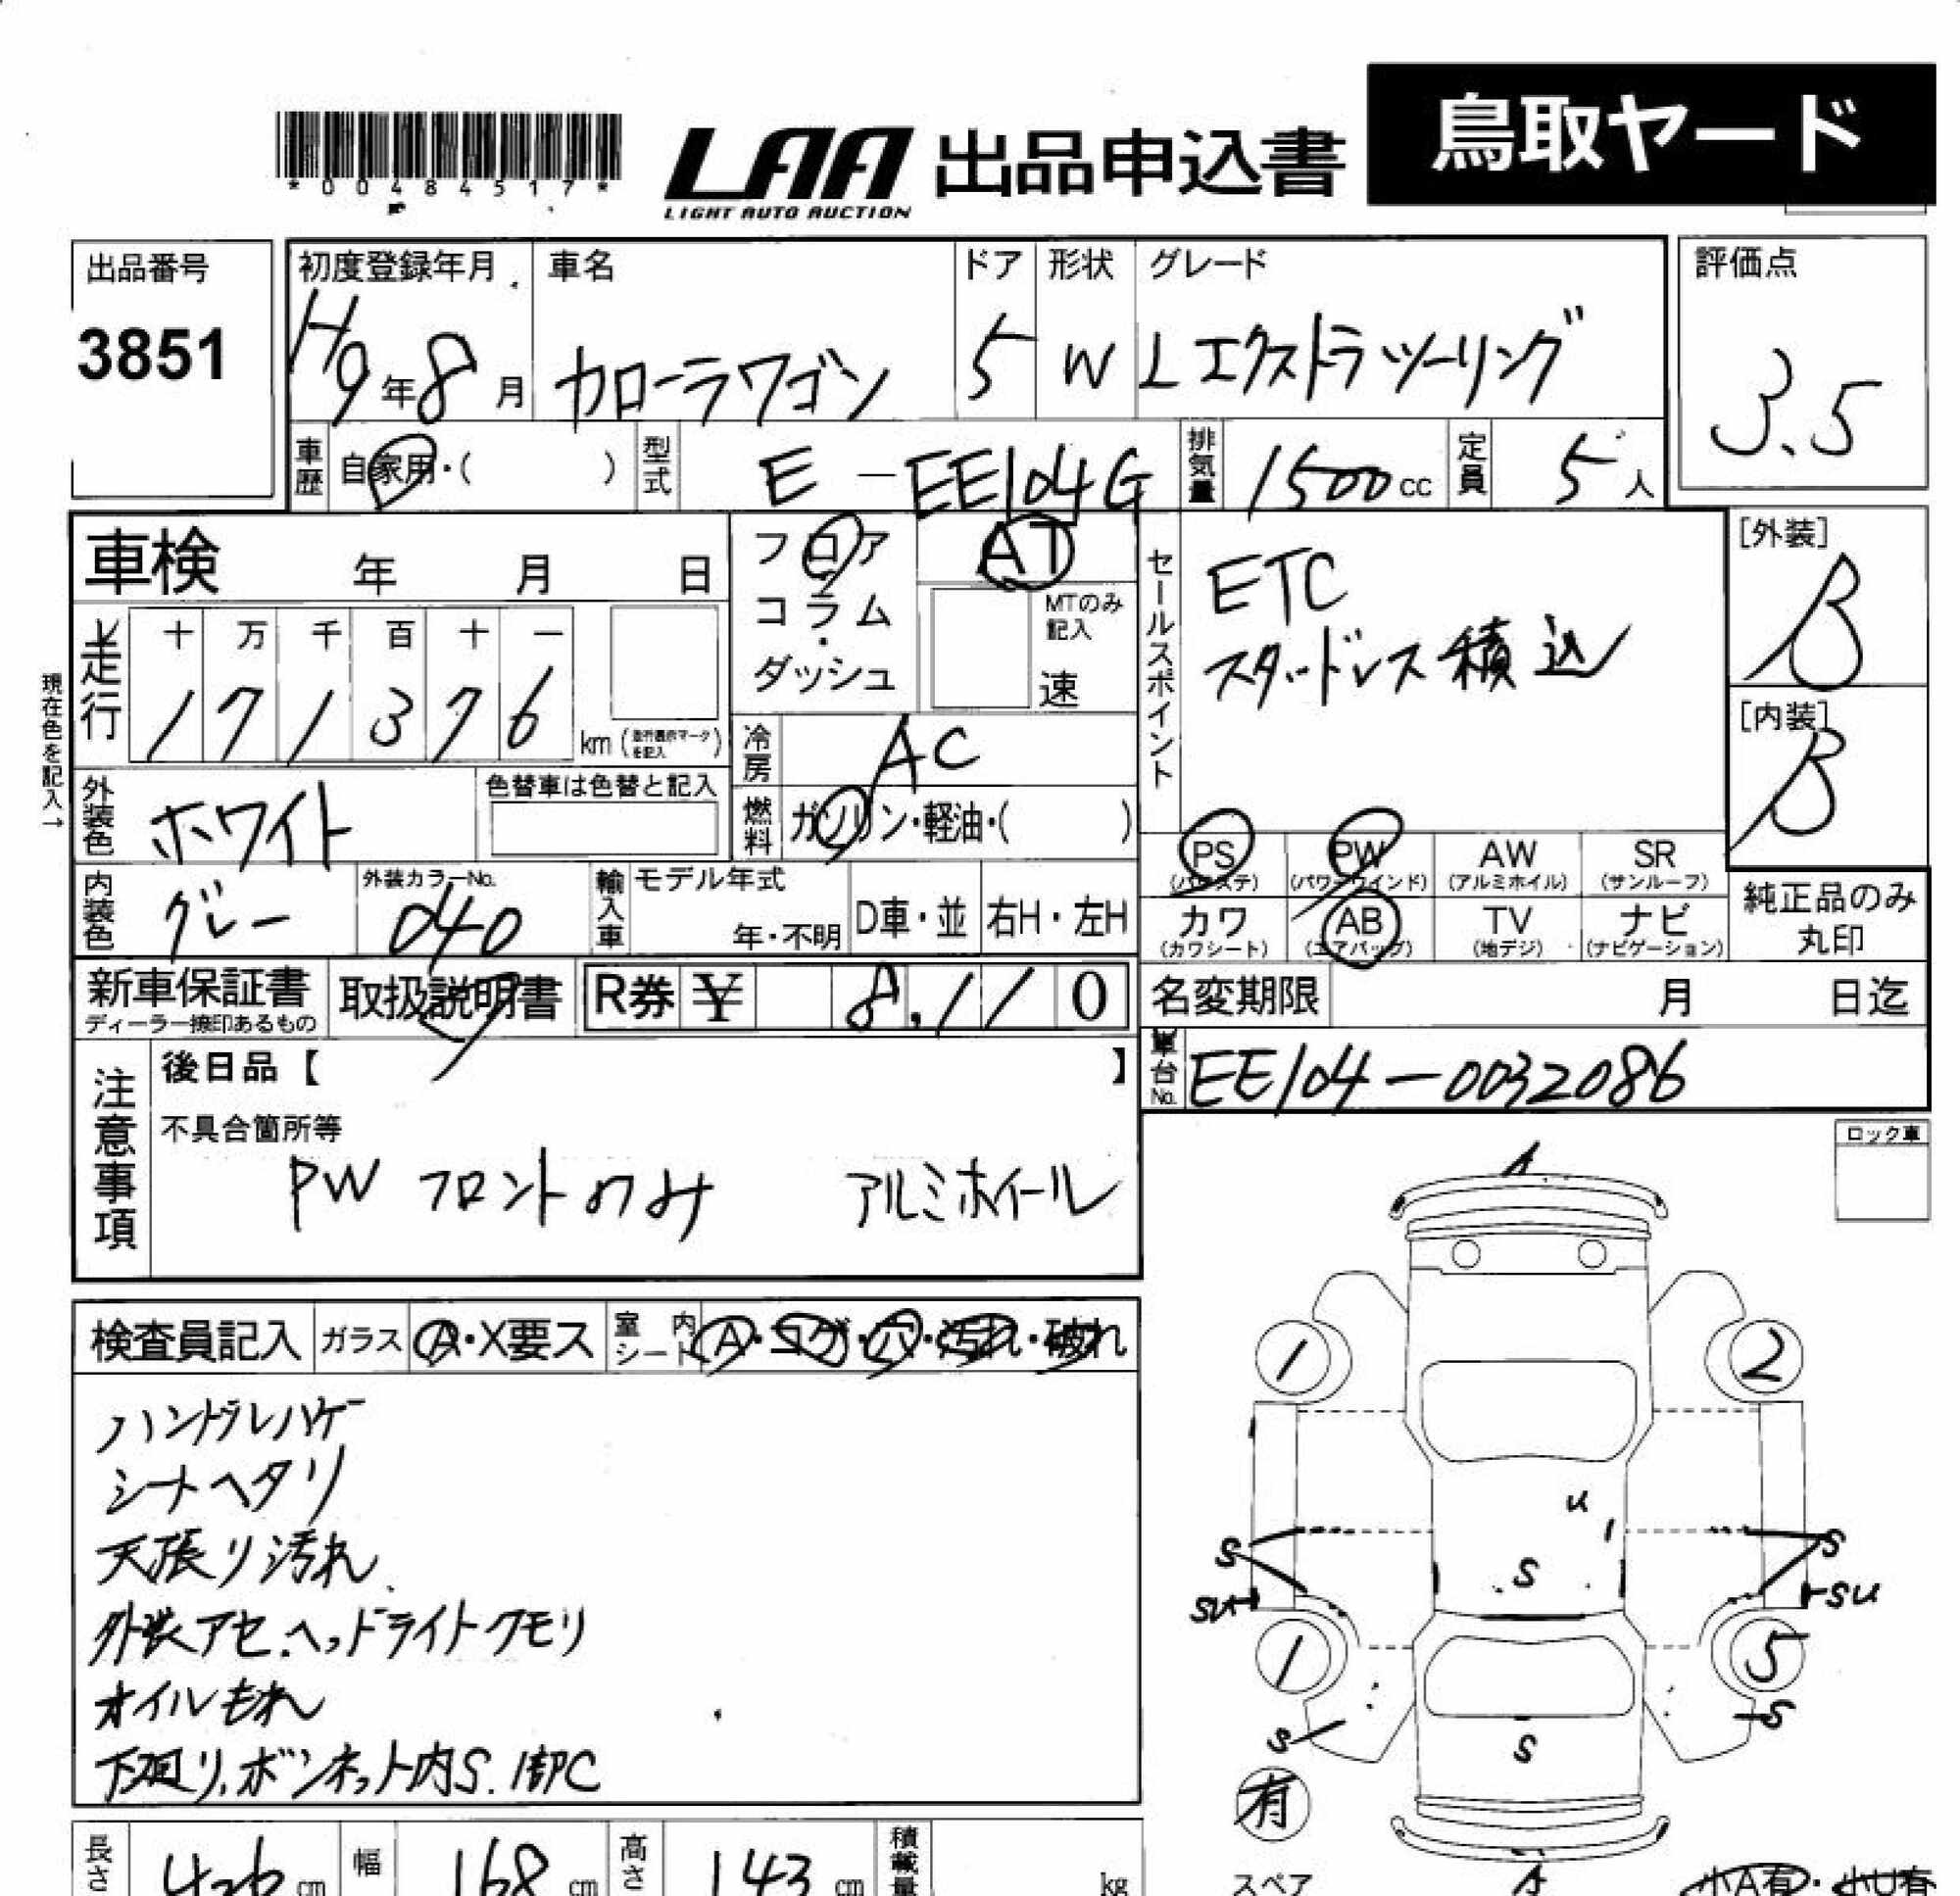 *00484517*
LAA 出品申込書 鳥取ヤード
LIGHT AUTO AUCTION
出品番号 初度登録年月 車名 ドア 形状 グレード 評価点
3851 H9年8月 カローラワゴン 5 W Lエクストラツーリング 3.5
車歴 自家用・( ) 型式 E-EE104G 排気量 1500cc 定員 5人
車検 年 月 日
フロア AT
コラム・
ダッシュ
MTのみ
記入
速
セールスポイント
ETC
スタッドレス積込
[外装]
B
[内装]
B
現在色を記入→
走行 十 万 千 百 十 一
1 7 1 3 7 6 km (走行表示マークを記入)
冷房 AC
外装色 ホワイト 色替車は色替と記入
燃料 ガソリン・軽油・( )
PS PW AW SR
(パワステ) (パワーウインド) (アルミホイル) (サンルーフ)
カワ AB TV ナビ
(カワシート) (エアバッグ) (地デジ) (ナビゲーション)
純正品のみ
丸印
内装色 グレー 外装カラーNo. 040 輸入車 モデル年式 年・不明 D車・並 右H・左H
新車保証書 取扱説明書 R券 ¥ 8,110
ディーラー捺印あるもの
名変期限 月 日迄
車台No. EE104-0032086
注意事項
後日品【 】
不具合箇所等
PW フロントのみ アルミホイール
ロック車
検査員記入 ガラス A・X要ス 室内シート A・コゲ・穴・汚れ・破れ
ハンドルハゲ
シートヘタリ
天張り汚れ
外装アセ.ヘッドライトクモリ
オイルもれ
下廻り.ボンネット内S.1部C
A
1 2
U
S S S
SU SU
1 5
S S S
有
スペア
A
小A有・小U有
長さ 426cm 幅 168cm 高さ 143cm 積載量 kg